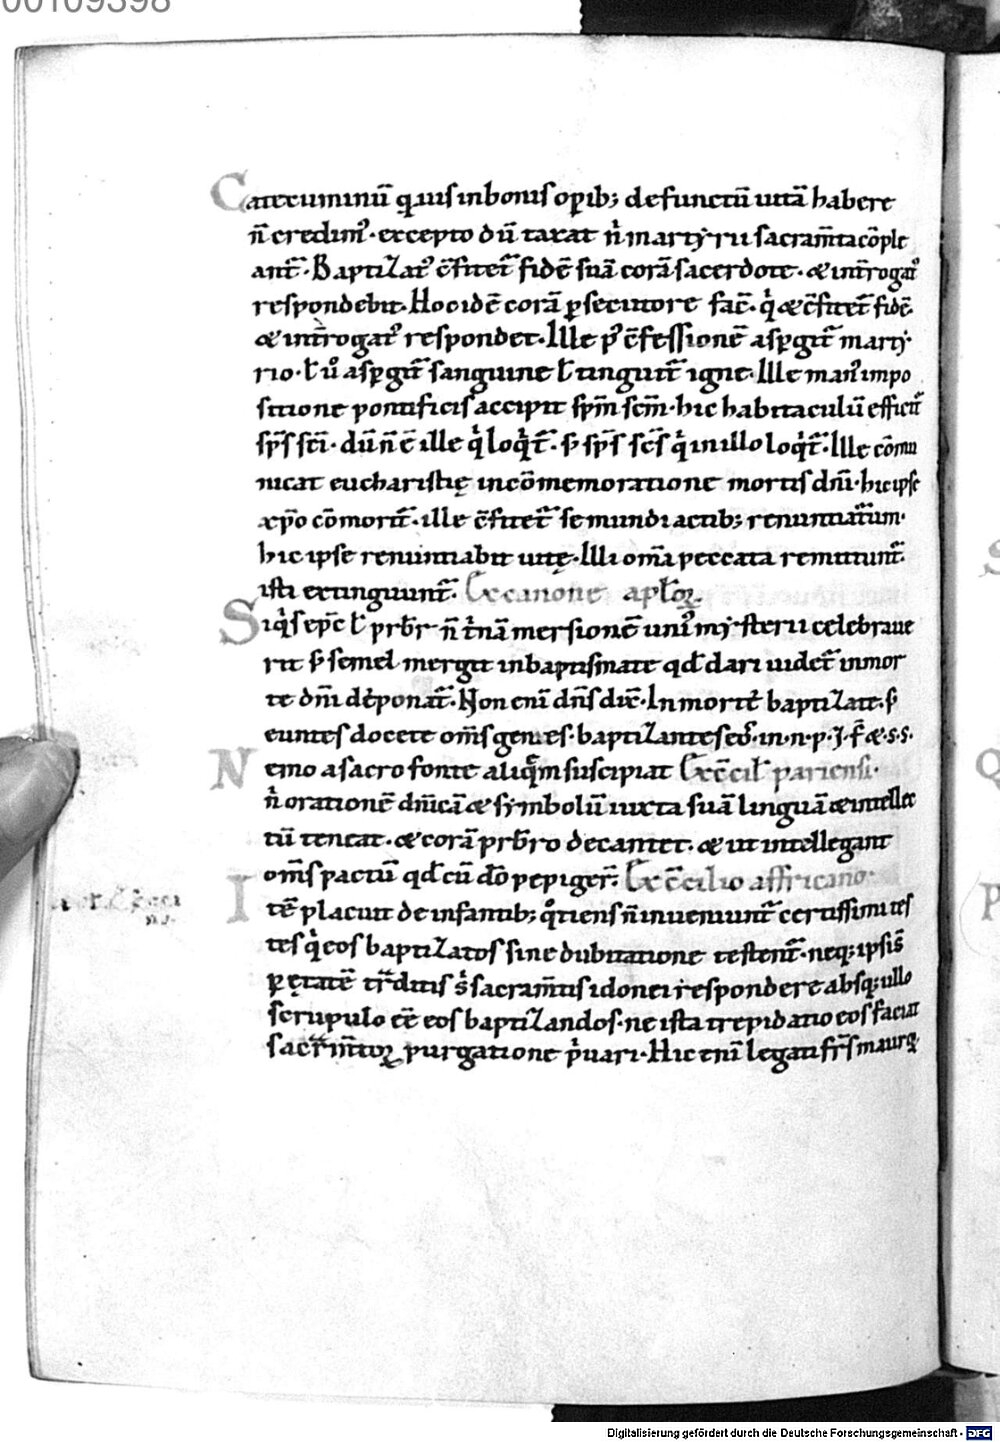 00109398
Catecuminū quis in bonis opib; defunctū uitā habere
n̄ credim᾽. excepto dū taxat n̄ martyrii sacram̄ta cōple
ant̄. Baptizat᾽ c̄fitet̄ fidē suā corā sacerdote. & int̄rogat᾽
respondebit. Hoc idē corā p̱secutore fac̄. q̇ & c̄fitet̄ fidē
& int̄rogat᾽ respondet. Ille p᾽ c̄fessionē asp̱git̄ marty
rio. ł ů asp̱git̄ sanguine ł tinguit̄ igne. Ille man᾽ impo
sitione pontificis accipit sp̄m sc̄m. hic habitaculū efficit̄
sp̄s sc̄i. dū n̄ ē ille q̇ loq̇t̄. s̄ sp̄s sc̄s q̇ in illo loq̇t̄. Ille cōmu
nicat eucharistię in cōmemoratione mortis dn̄i. hic ipse
xp̄o cōmorit̄. ille c̄fitet̄ se mundi actib; renuntiat̄um.
hic ipse renuntiabit uitę. Illi om̄a peccata remittunt̄.
isti extinguunt̄. Ex canone apłoꝝ.
Siq̇s ep̄c ł prb̄r n̄ t̓nā mersionē uni᾽ mysterii celebraue
rit s̄ semel mergit in baptismate qd̄ dari uidet̄ in mor
te dn̄i dēponat̄. Non eni dn̄s dix̄. In morte baptizate. s̄
euntes docete om̄s gentes. baptizantes eo᷒. in. n. p. &. f̄. &. s. s.
Nemo a sacro fonte aliq̄m suscipiat Ex c̄cił pariensi.
n̄ orationē dn̄icā & symbolū iuxta suā linguā & intellec
tū teneat. & corā prb̄ro decantet. & ut intellegant
om̄s pactū qd̄ cū dō pepiger̄. Ex c̄cilio affricano.
Itē placuit de infantib; q̊tiens n̄ inueniunt̄ certissimi tes
tes q̇ eos baptizatos sine dubitatione testent̄. neq; ipsi s̄
p̱ ętatē t̄rditis s̓ sacram̄tis idonei respondere absq; ullo
scrupulo eē eos baptizandos. ne ista trepidatio eos faciat
sacr̄m̄toꝝ purgatione p̓uari. Hic eni legati fr̄s mauroꝝ
Digitalisierung gefördert durch die Deutsche Forschungsgemeinschaft - DFG